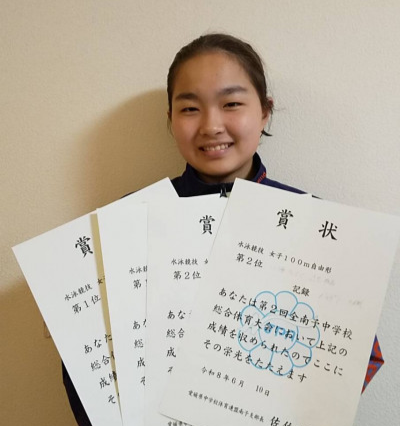 賞
水泳競技
第1位
あな
総合
成績
そ
賞
水泳競技 女
第2位
あな
総合
成
賞状
水泳競技 女子100m自由形
第2位
記録
あなたは第2回全南予中学校
総合体育大会において上記の
成績を収められたのでここに
その栄光をたたえます
令和8年6月10日
愛媛県中学校体育連盟南予支部長